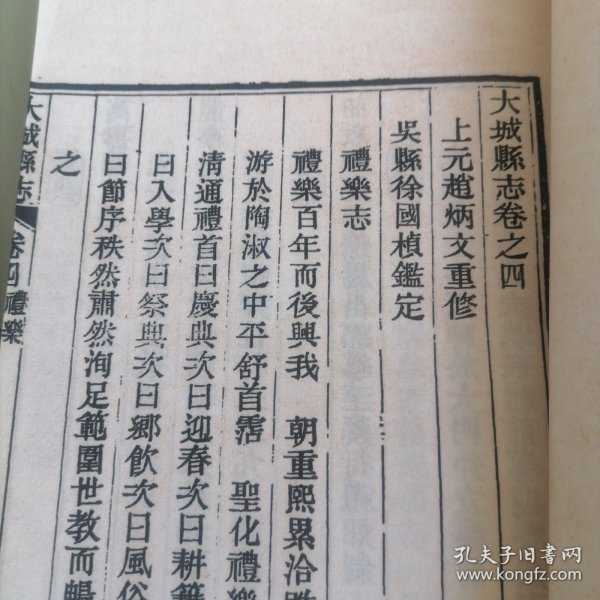 大城縣志卷之四
上元趙炳文重修
吳縣徐國楨鑑定
禮樂志
禮樂百年而後興我 朝重熙累洽
游於陶淑之中平舒首霑 聖化禮樂
清通禮首曰慶典次曰迎春次曰耕
曰入學次曰祭典次曰鄉飲次曰風俗
曰節序秩然肅然洵足範圍世教而
之
大城縣志 卷四 禮樂
孔夫子旧书网
www.kongfz.com